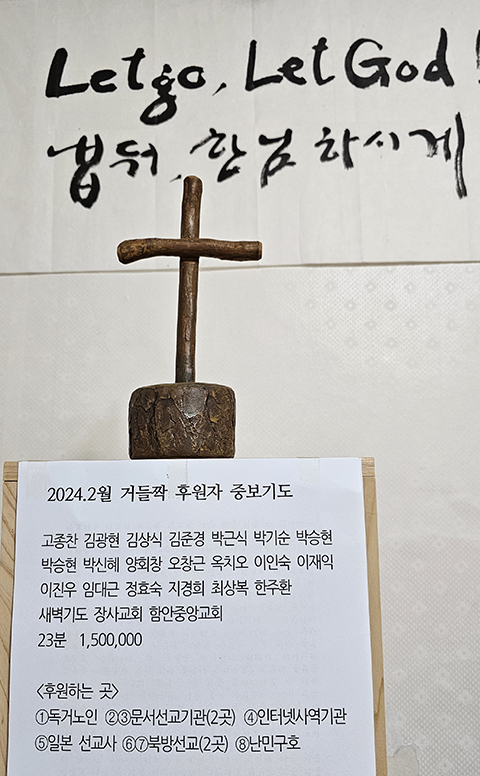 Let go, Let God!
냅둬, 한님 하시게
2024.2월 거들짝 후원자 중보기도
고종찬 김광현 김상식 김준경 박근식 박기순 박승현
박승현 박신혜 양회창 오창근 옥치오 이인숙 이재익
이진우 임대근 정효숙 지경희 최상복 한주환
새벽기도 장사교회 함안중앙교회
23분 1,500,000
<후원하는 곳>
①독거노인 ②③문서선교기관(2곳) ④인터넷사역기관
⑤일본 선교사 ⑥⑦북방선교(2곳) ⑧난민구호